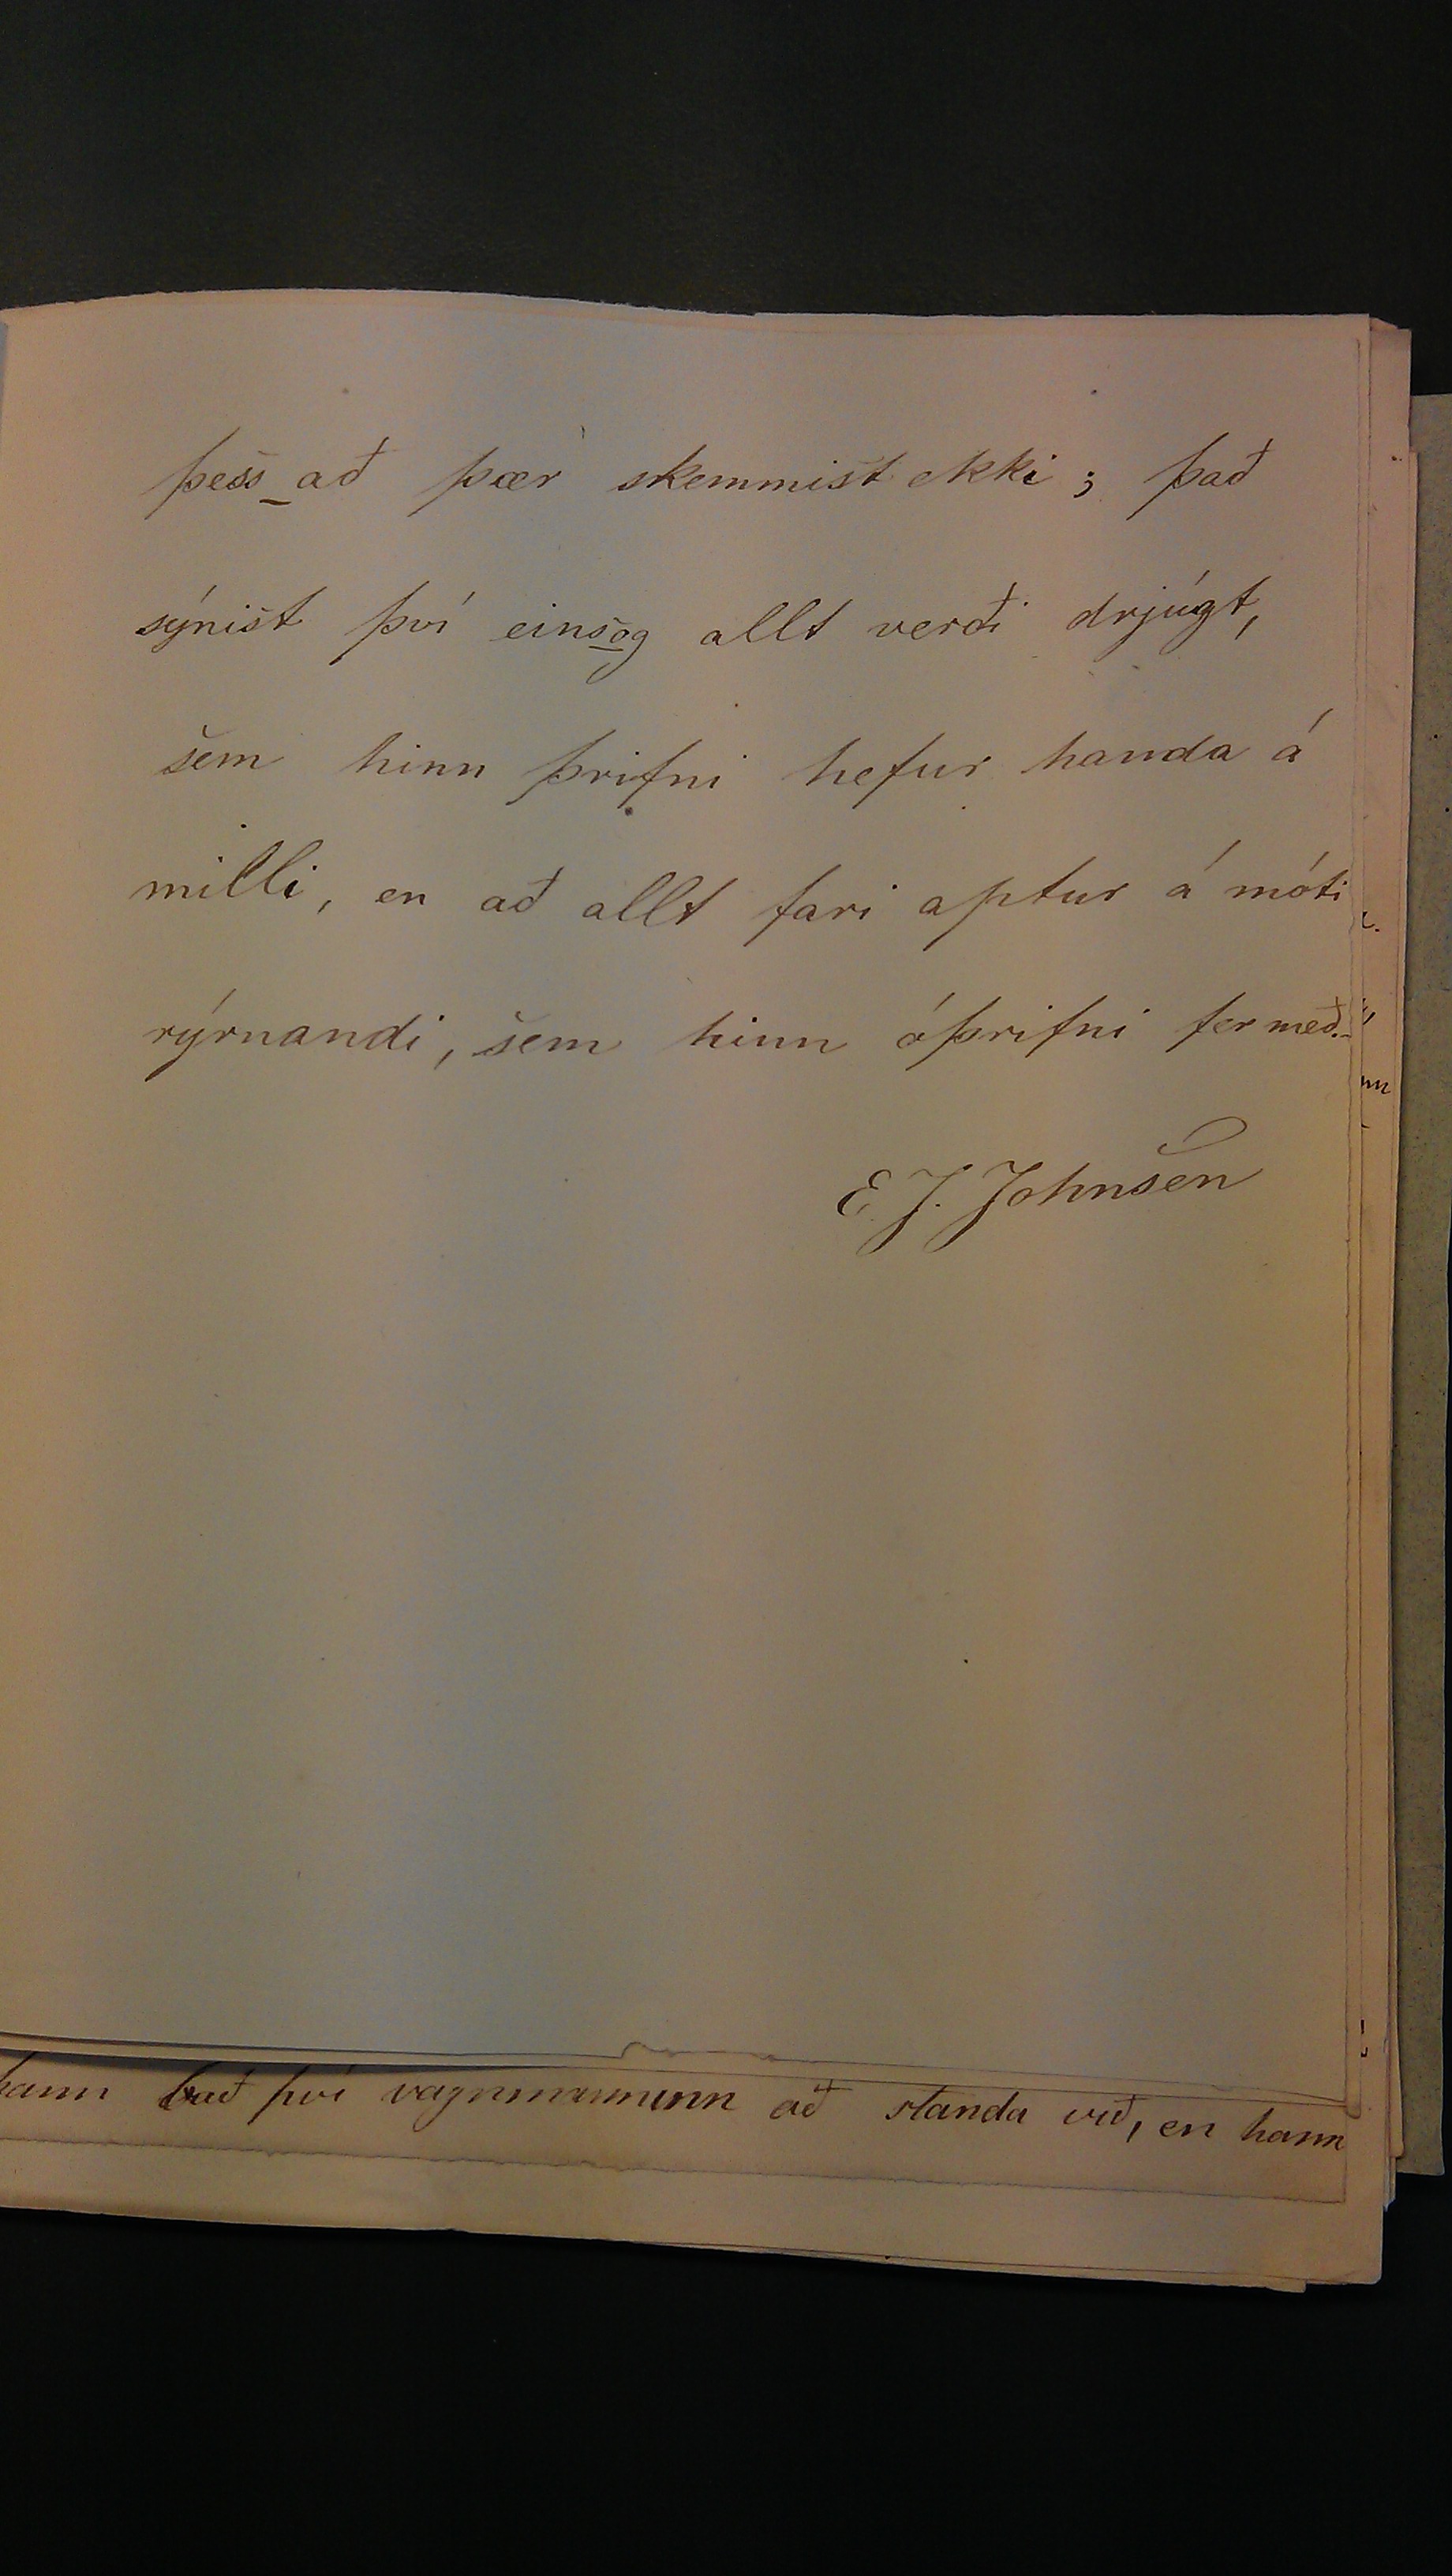 þess_að þær skemmist ekki; það
sýnist því eins_og allt verði drjúgt,
sem hinn þrifni hefur handa á
milli, en að allt fari aptur á móti
rýrnandi, sem hinn óþrifni fer með.-
E. J. Johnsen
hann bað því vagnmanninn að standa við, en hann